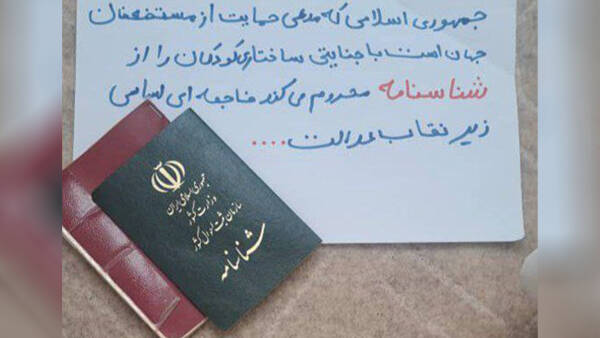 جمهوری اسلامی که مدعی حمایت از مستضعفان
جهان است با جنایتی ساختاری کودکان را از
شناسنامه محروم می کند فاجعه ای اساسی
زیر نقاب عدالت ....
جمهوری اسلامی ایران
وزارت کشور
سازمان ثبت احوال کشور
شناسنامه